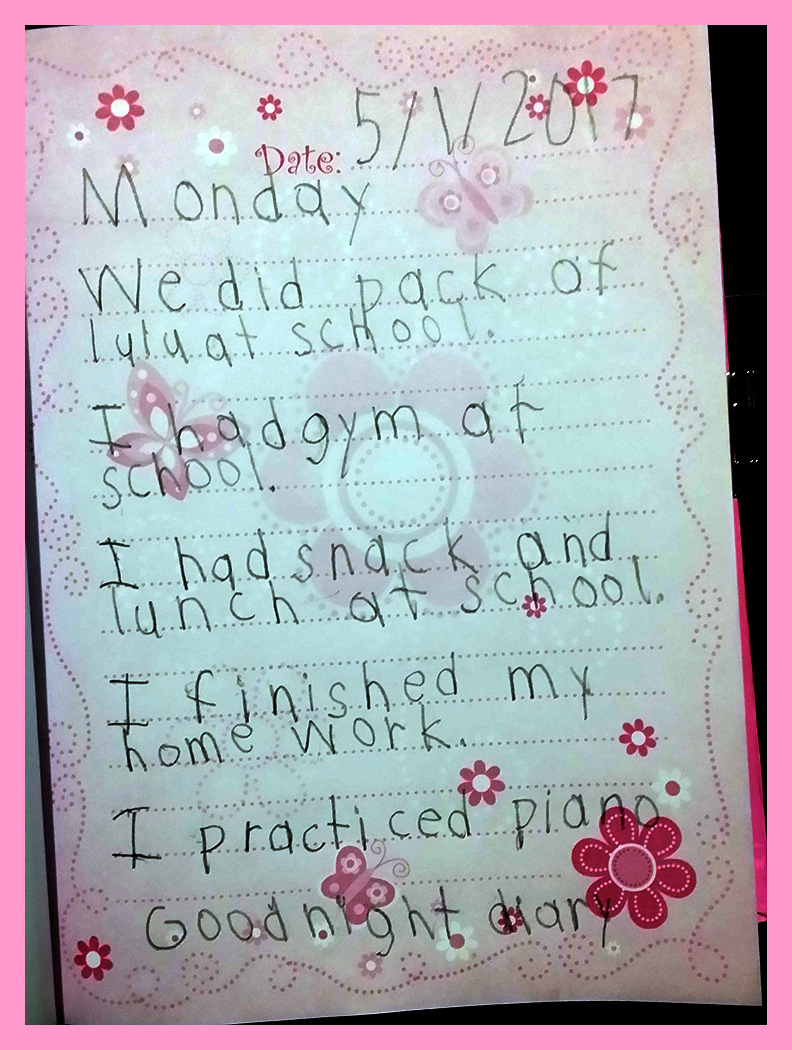 Date: 5/1/2017
Monday
We did pack of
lulu at school.
I had gym at
school.
I had snack and
lunch at school.
I finished my
home work.
I practiced piano
Good night diary